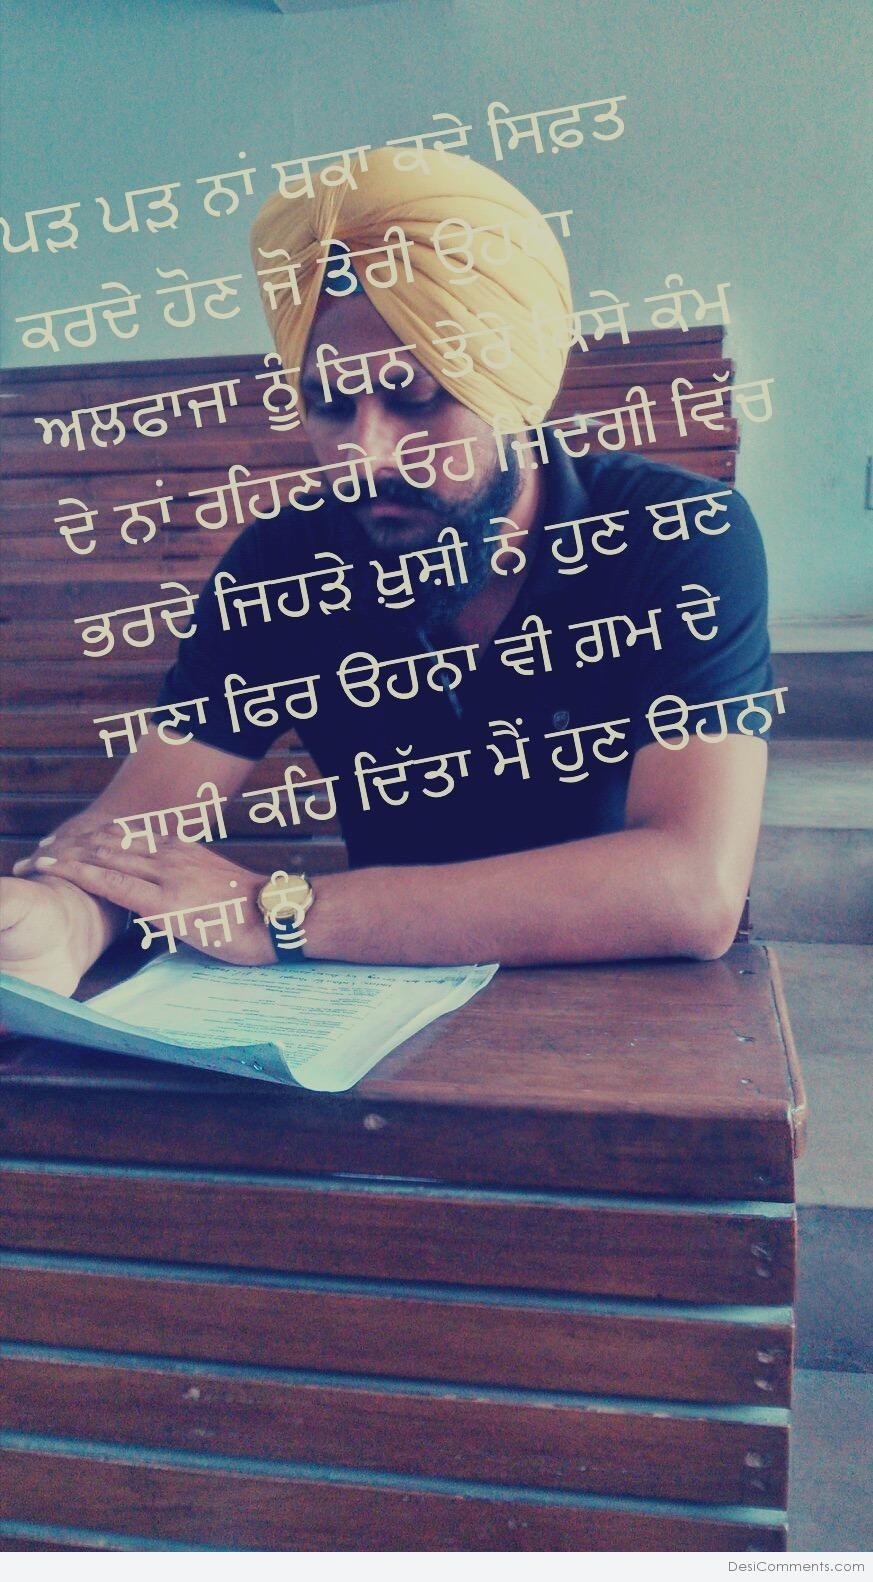 ਪੜ ਪੜ ਨਾਂ ਥਕਾ ਕਦੇ ਸਿਫ਼ਤ
ਕਰਦੇ ਹੋਣ ਜੋ ਤੇਰੀ ਉਹਨਾ
ਅਲਫਾਜਾ ਨੂੰ ਬਿਨ ਤੇਰੇ ਕਿਸੇ ਕੰਮ
ਦੇ ਨਾਂ ਰਹਿਣਗੇ ਓਹ ਜ਼ਿੰਦਗੀ ਵਿੱਚ
ਭਰਦੇ ਜਿਹੜੇ ਖ਼ੁਸ਼ੀ ਨੇ ਹੁਣ ਬਣ
ਜਾਣਾ ਫਿਰ ੳਹਨਾ ਵੀ ਗ਼ਮ ਦੇ
ਸਾਥੀ ਕਹਿ ਦਿੱਤਾ ਮੈਂ ਹੁਣ ੳਹਨਾ
ਸਾਜ਼ਾਂ ਨੂੰ
DesiComments.com